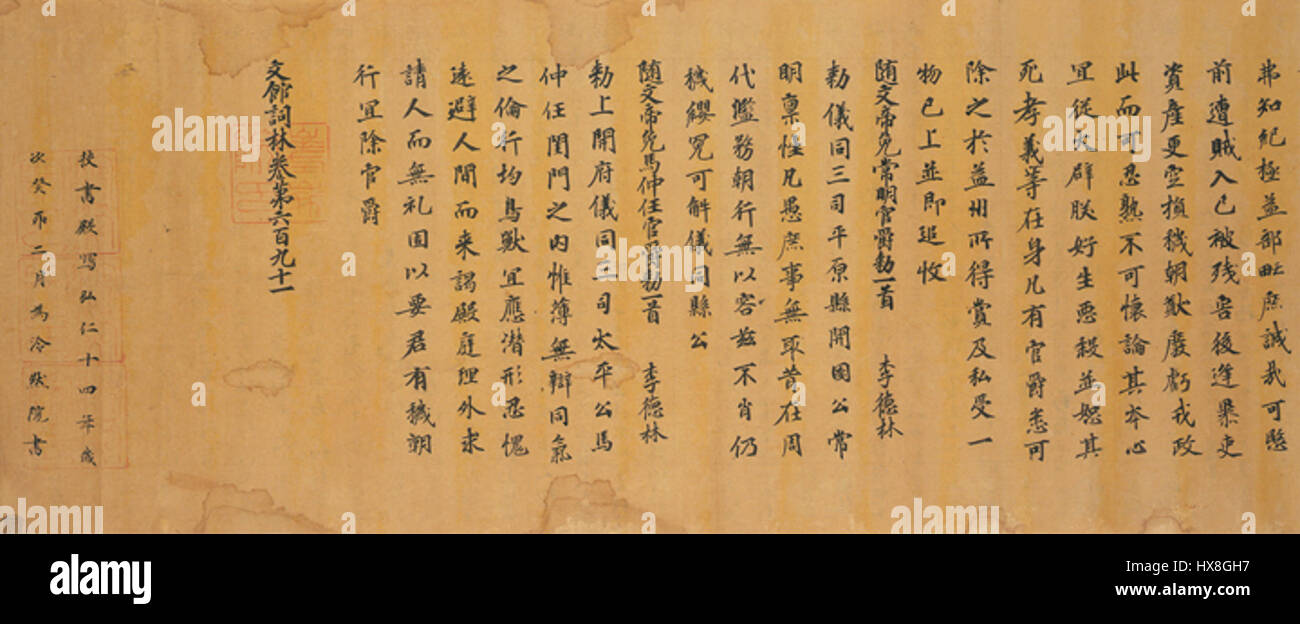 弗知紀極益部甿庶誠哉可愍
前遭賊入已被残害後逢暴吏
資産更空損穢朝猷廢虧我政
此而可忍熟不可懷論其本心
宜從大辟朕好生惡殺並恕其
死孝義等在身凡有官爵悉可
除之於益州所得賞及私受一
物已上並即追收
随文帝免常明官爵勅一首 李德林
勅儀同三司平原縣開國公常
明稟性凡愚庶事無取昔在周
代監務朝行無以容茲不肖仍
穢纓冕可解儀同縣公
随文帝免馬仲任官爵勅一首 李德林
勅上開府儀同三司太平公馬
仲任閨門之內惟薄無辯同氣
之倫行均鳥獸宜應潜形忍愧
遠避人間而来謁殿庭理外求
請人而無礼固以要君有穢朝
行宜除官爵
文館詞林卷第六百九十一
校書殿寫弘仁十四年歲
次癸卯二月為冷然院書
alamy stock photo
HX8GH7
www.alamy.com